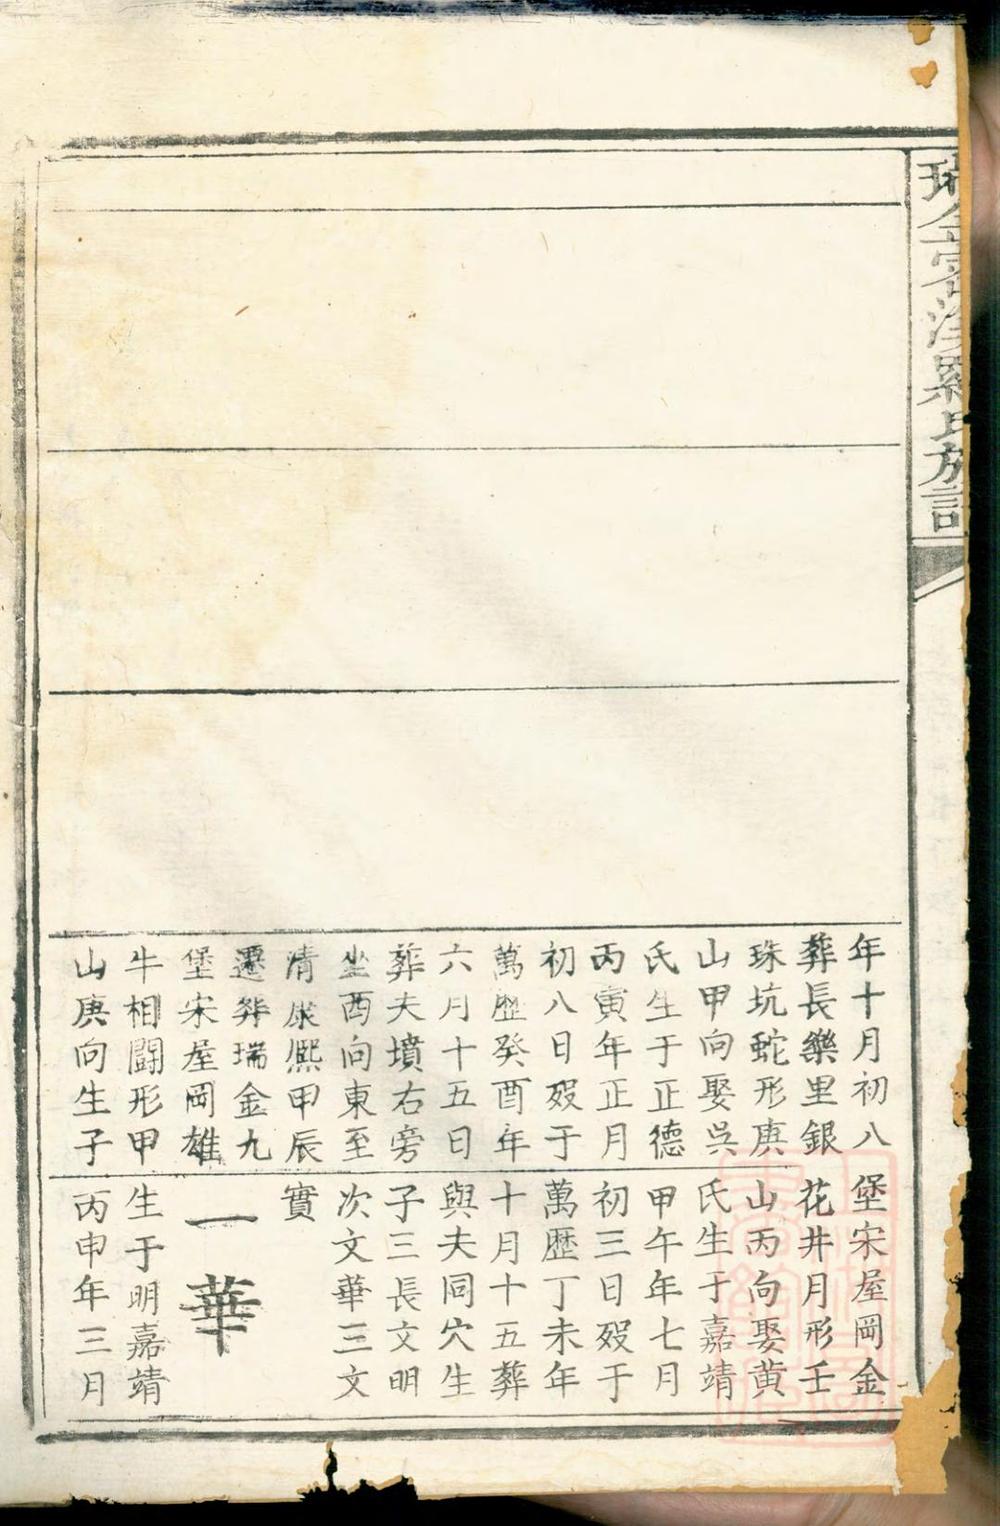 瑞金密溪羅氏族譜
年十月初八
葬長樂里銀
珠坑蛇形庚
山甲向娶吳
氏生于正德
丙寅年正月
初八日歿于
萬歷癸酉年
六月十五日
葬夫墳右旁
坐酉向東至
清康熙甲辰
遷葬瑞金九
堡宋屋岡雄
牛相鬪形甲
山庚向生子
堡宋屋岡金
花井月形壬
山丙向娶黄
氏生于嘉靖
甲午年七月
初三日歿于
萬歷丁未年
十月十五葬
與夫同穴生
子三長文明
次文華三文
實
一華
生于明嘉靖
丙申年三月